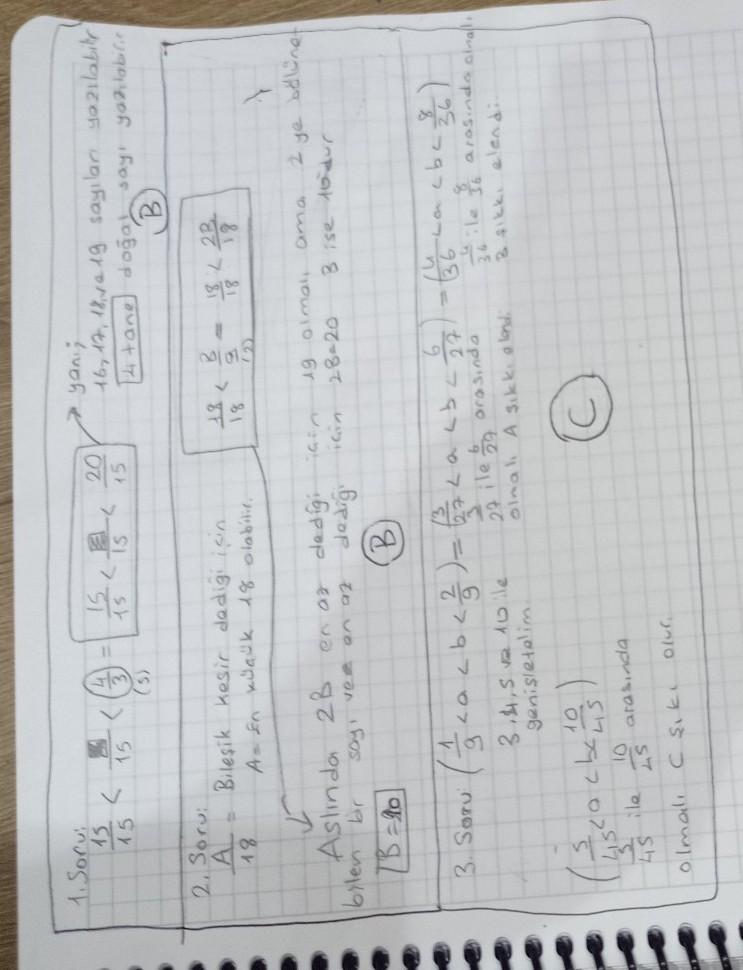 1. Soru:
15/15 < /15 < 4/3 (5) = 15/15 < /15 < 20/15
yani;
16, 17, 18, ve 19 sayıları yazılabilir
4 tane doğal sayı yazılabilir.
B
2. Soru:
A/18 = Bileşik kesir dediği için
A = En küçük 18 olabilir.
18/18 < B/9 (2) = 18/18 < 2B/18
Aslında 2B en az dediği için 19 olmalı ama 2 ye bölüne-
bilen bir sayı ve en az dediği için 2B=20 B ise 10dur
B=10
B
3. Soru (1/9 < a < b < 2/9) = (3/27 < a < b < 6/27) = (4/36 < a < b < 8/36)
3, 4, 5 ve 10 ile
genişletelim.
3/27 ile 6/27 arasında
olmalı A şıkkı elendi.
4/36 ile 8/36 arasında olmalı
B şıkkı elendi.
(5/45 < a < b < 10/45)
5/45 ile 10/45 arasında
olmalı C şıkı olur.
C